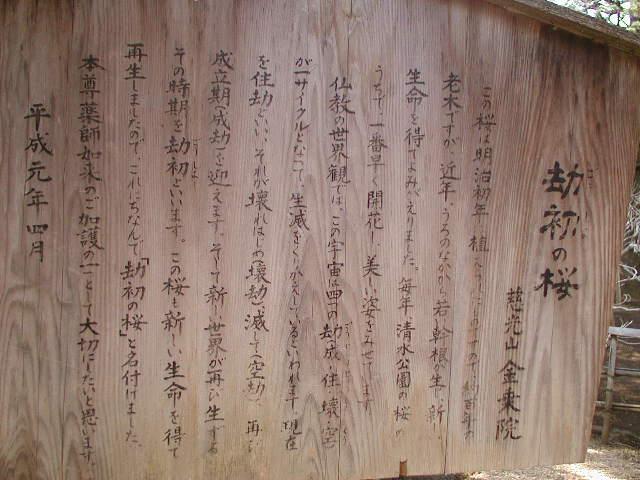 劫初の桜
慈光山 金乗院
この桜は明治初年、植えられたものです。約百年の
老木ですが、近年、うろのなかから若い幹根が生じ、新しい
生命を得てよみがえりました。毎年、清水公園の桜の
うちで、一番早く開花し、美しい姿をみせてくれます
仏教の世界観では、この宇宙は四つの劫、成・住・壊・空
が一サイクルとなって、生滅をくりかえしているといわれます。現在
を住劫といい、それが壊れはじめ(壊劫)、滅して(空劫)、再び
成立期(成劫)を迎えます。そして新しい世界が再び生ずる
その時期を劫初といいます。この桜も新しい生命を得て
再生しましたので、これにちなんで「劫初の桜」と名付けました。
本尊薬師如来のご加護の一つとして大切にしたいと思います。
平成元年 四月